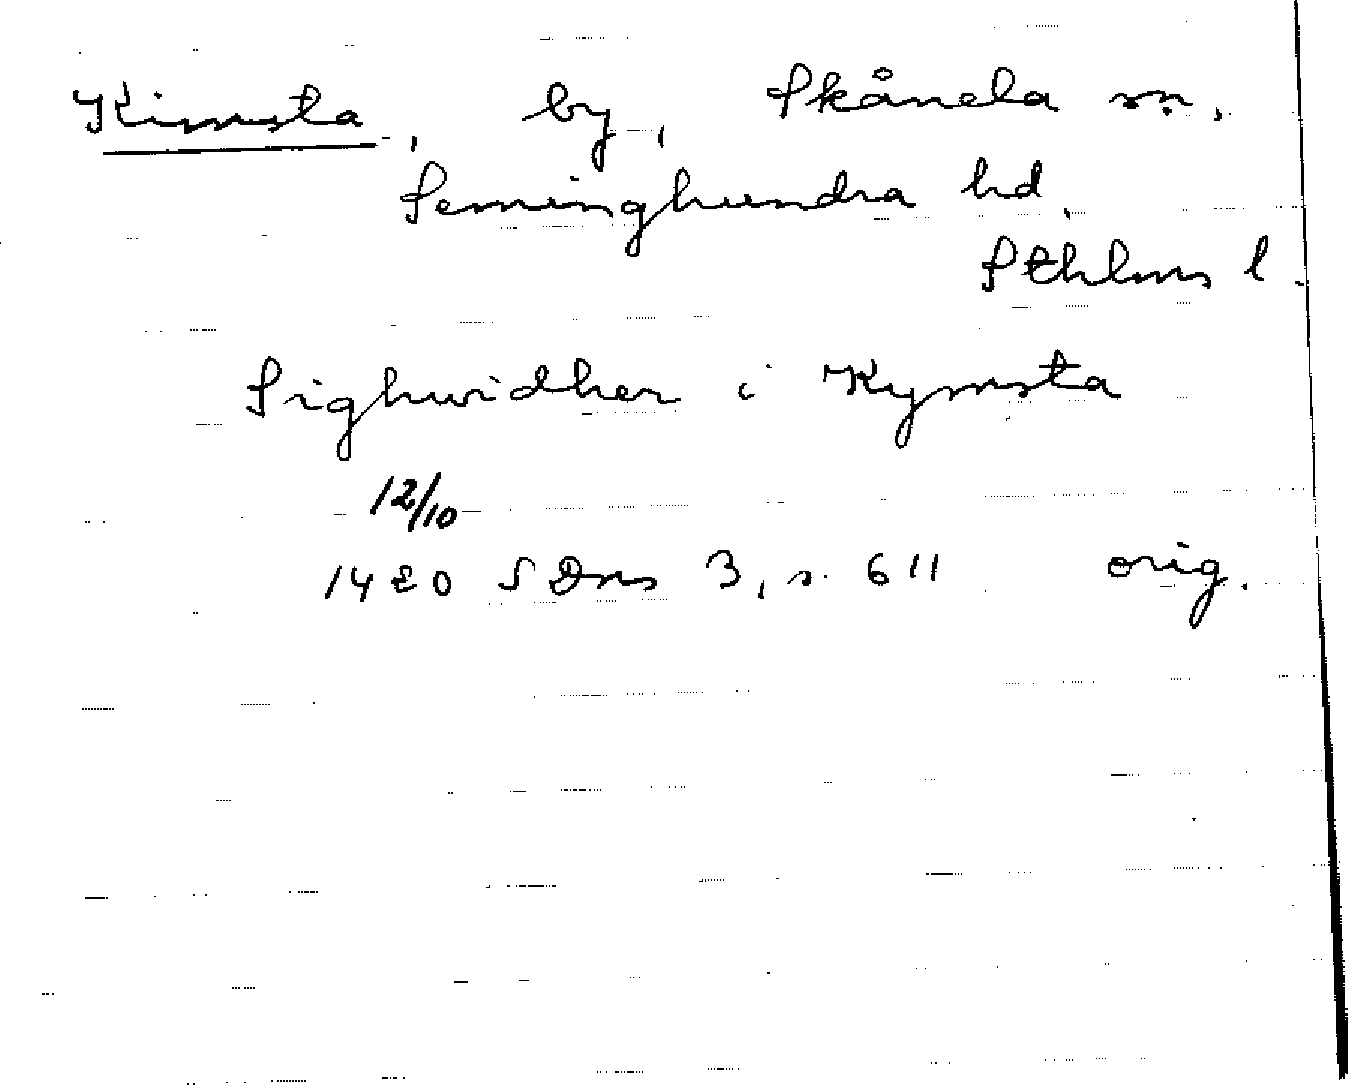 Kimsta, by, Skånela sn,
Seminghundra hd,
Sthlms l.
Sighwidher i Kymsta
12/10
1420 SDns 3, s. 611 orig.